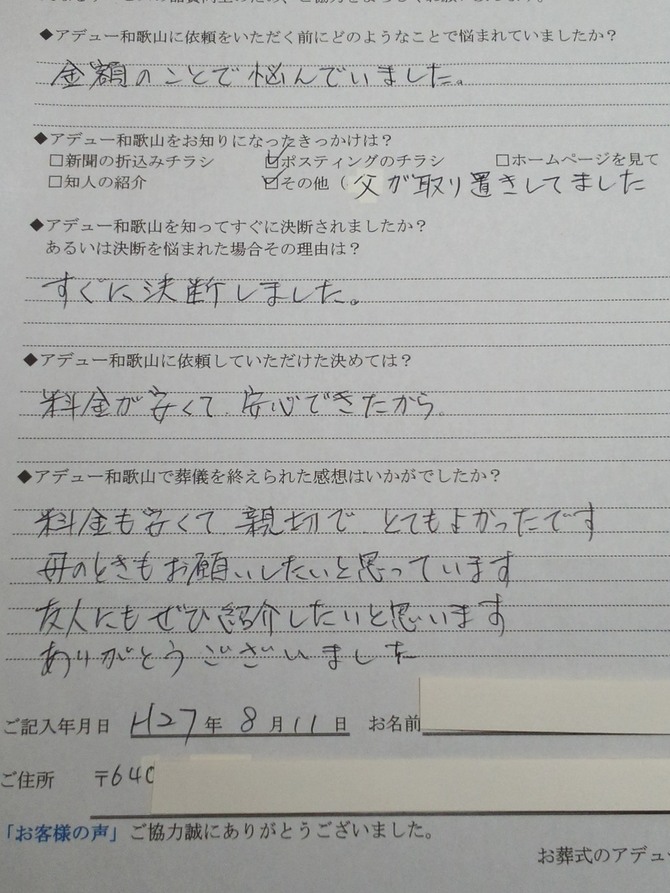 ◆アデュー和歌山に依頼をいただく前にどのようなことで悩まれていましたか？
金額のことで悩んでいました。
◆アデュー和歌山をお知りになったきっかけは？
□新聞の折込みチラシ ☑ポスティングのチラシ □ホームページを見て
□知人の紹介 ☑その他（父が取り置きしてました
◆アデュー和歌山を知ってすぐに決断されましたか？
あるいは決断を悩まれた場合その理由は？
すぐに決断しました。
◆アデュー和歌山に依頼していただけた決めては？
料金が安くて、安心できたから。
◆アデュー和歌山で葬儀を終えられた感想はいかがでしたか？
料金も安くて 親切で とてもよかったです
母のときもお願いしたいと思っています
友人にもぜひ紹介したいと思います
ありがとうございました
ご記入年月日 H27年 8月11日 お名前
ご住所 〒640
「お客様の声」ご協力誠にありがとうございました。
お葬式のアデュー